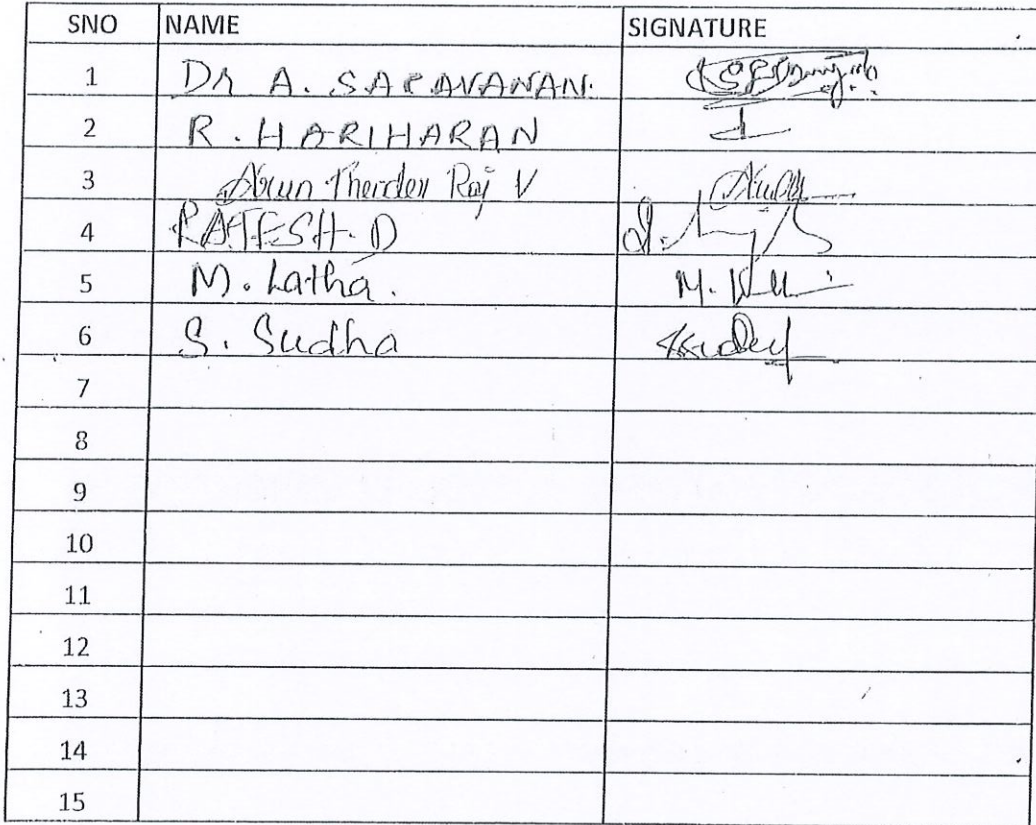 SNO NAME SIGNATURE
1 Dr A. SARAVANAN.
2 R. HARIHARAN
3 Arun Raj V
4 RAJESH. D
5 M. Latha.
6 S. Sudha
7
8
9
10
11
12
13
14
15